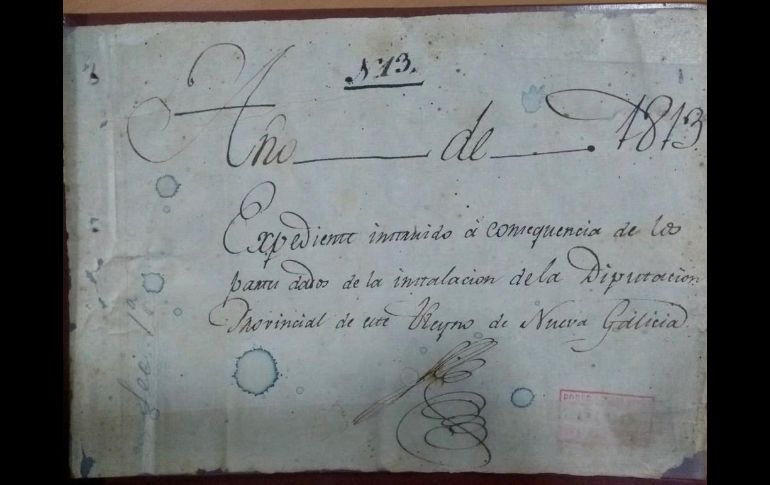 N 13.
Año de 1813
Expediente instruido á consequencia de los
partes dados de la instalacion de la Diputacion
Provincial de este Reyno de Nueva Galicia.
Sec. 1ª